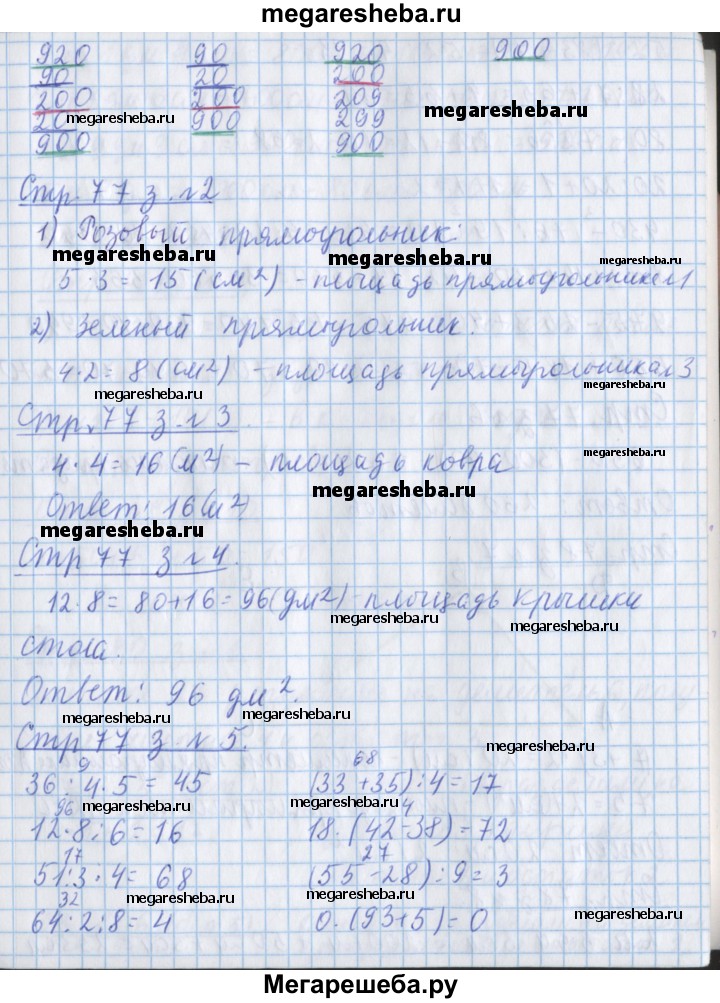 megaresheba.ru
920 90 920 900
90 20 200
200 200 209
megaresheba.ru
megaresheba.ru
20 900 299
megaresheba.ru
900 900
Стр. 77 з. №2
1) Розовый прямоугольник:
megaresheba.ru
megaresheba.ru
5 · 3 = 15 (см²) - площадь прямоугольника №1
2) Зеленый прямоугольник:
4 · 2 = 8 (см²) - площадь прямоугольника №3
megaresheba.ru
megaresheba.ru
Стр. 77 з. №3.
4 · 4 = 16 (м²) - площадь ковра
megaresheba.ru
megaresheba.ru
Ответ: 16 (м²)
megaresheba.ru
Стр 77 з №4.
12 · 8 = 80 + 16 = 96 (дм²) - площадь крышки
megaresheba.ru
megaresheba.ru
стола.
Ответ: 96 дм².
megaresheba.ru
megaresheba.ru
Стр 77 з №5.
megaresheba.ru
9 68
36 : 4 · 5 = 45 (33 + 35) : 4 = 17
megaresheba.ru
megaresheba.ru
96 4
12 · 8 : 6 = 16 18 · (42 - 38) = 72
megaresheba.ru
17 27
51 : 3 · 4 = 68 (55 - 28) : 9 = 3
megaresheba.ru
megaresheba.ru
32
64 : 2 : 8 = 4 0 · (93 + 5) = 0
Мегарешеба.ру